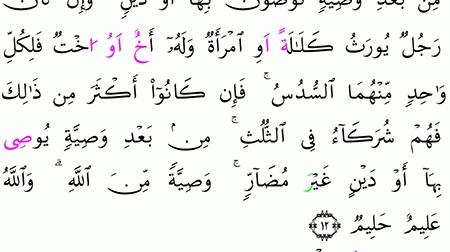 مِنۢ بَعْدِ وَصِيَّةٍ تُوصُونَ بِهَآ أَوْ دَيْنٍ ۗ وَإِن كَانَ
رَجُلٌ يُورَثُ كَلَـٰلَةً اَوِ ٱمْرَأَةٌ وَلَهُۥٓ أَخٌ اَوُ اخْتٌ فَلِكُلِّ
وَٰحِدٍ مِّنْهُمَا ٱلسُّدُسُ ۚ فَإِن كَانُوٓا۟ أَكْثَرَ مِن ذَٰلِكَ
فَهُمْ شُرَكَآءُ فِى ٱلثُّلُثِ ۚ مِنۢ بَعْدِ وَصِيَّةٍ يُوصِى
بِهَآ أَوْ دَيْنٍ غَيْرَ مُضَآرٍّ ۚ وَصِيَّةً مِّنَ ٱللَّهِ ۗ وَٱللَّهُ
عَلِيمٌ حَلِيمٌ ١٢